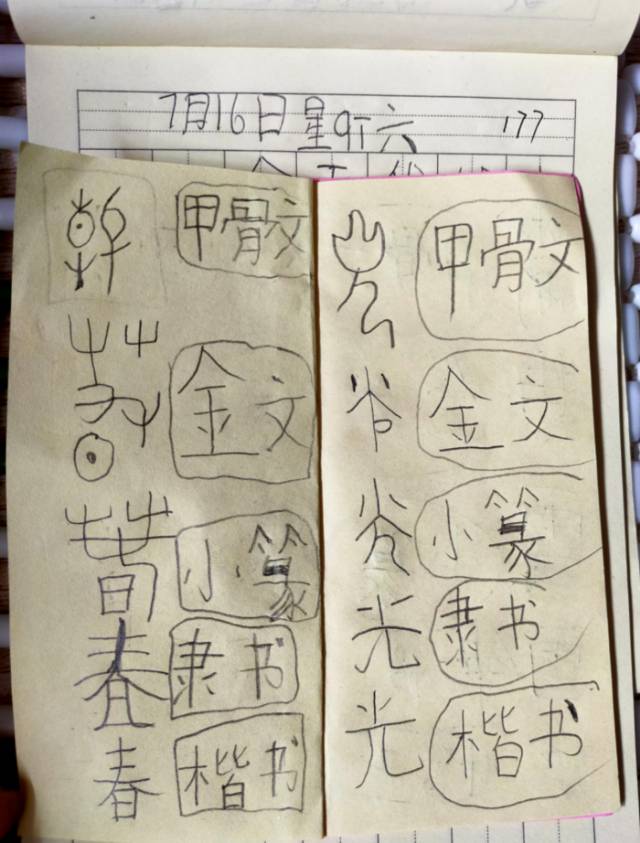 7月16日星期六 177
甲骨文
金文
小篆
春 隶书
春 楷书
甲骨文
金文
小篆
光 隶书
光 楷书